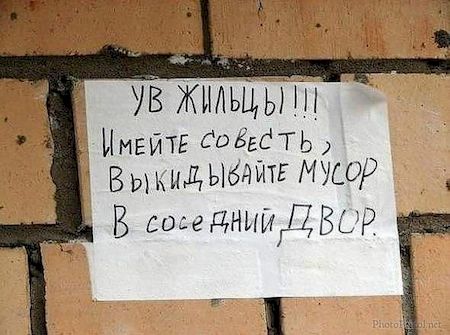 УВ ЖИЛЬЦЫ!!!
ИМЕЙТЕ СОВЕСТЬ,
ВЫКИДЫВАЙТЕ МУСОР
В СОСЕДНИЙ ДВОР.